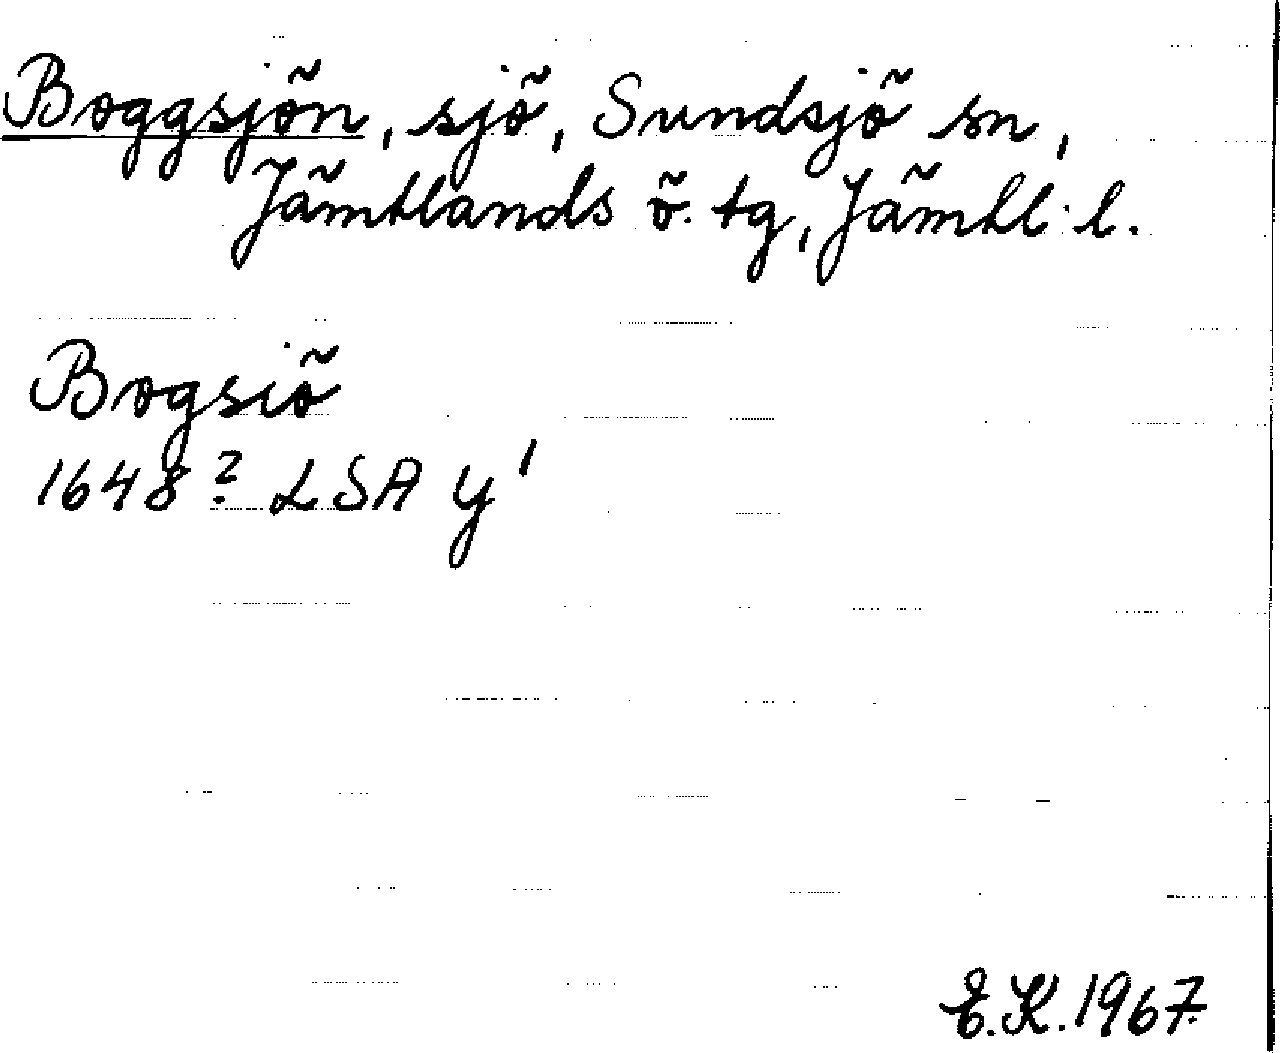 Boggsjön, sjö, Sundsjö sn,
Jämtlands ö. tg, Jämtl. l.
Bogsiö
1648? LSA y¹
E.K. 1967.